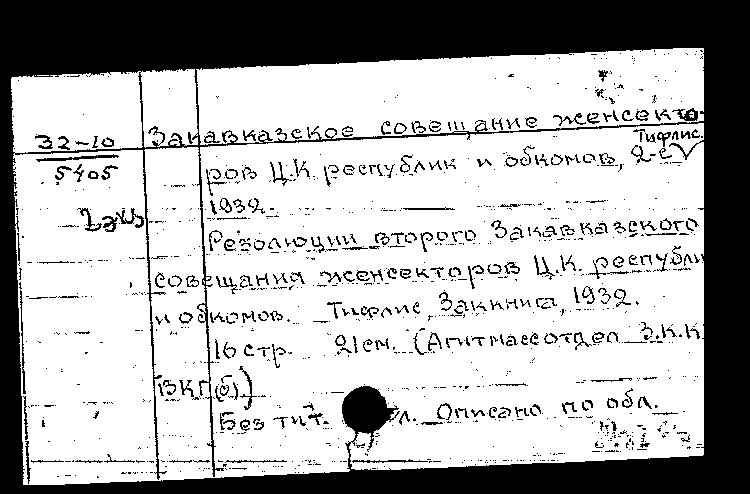 32-10 Закавказское совещание женсекто-
5405 ров Ц.К. республик и обкомов, 2-е Тифлис.
2 экз 1932.
Резолюции второго Закавказского
совещания женсекторов Ц.К. республи
и обкомов. Тифлис, Заккнига, 1932.
16 стр. 21 см. (Агитмассотдел З.К.К
ВКП(б).)
Без тит. л. Описано по обл.